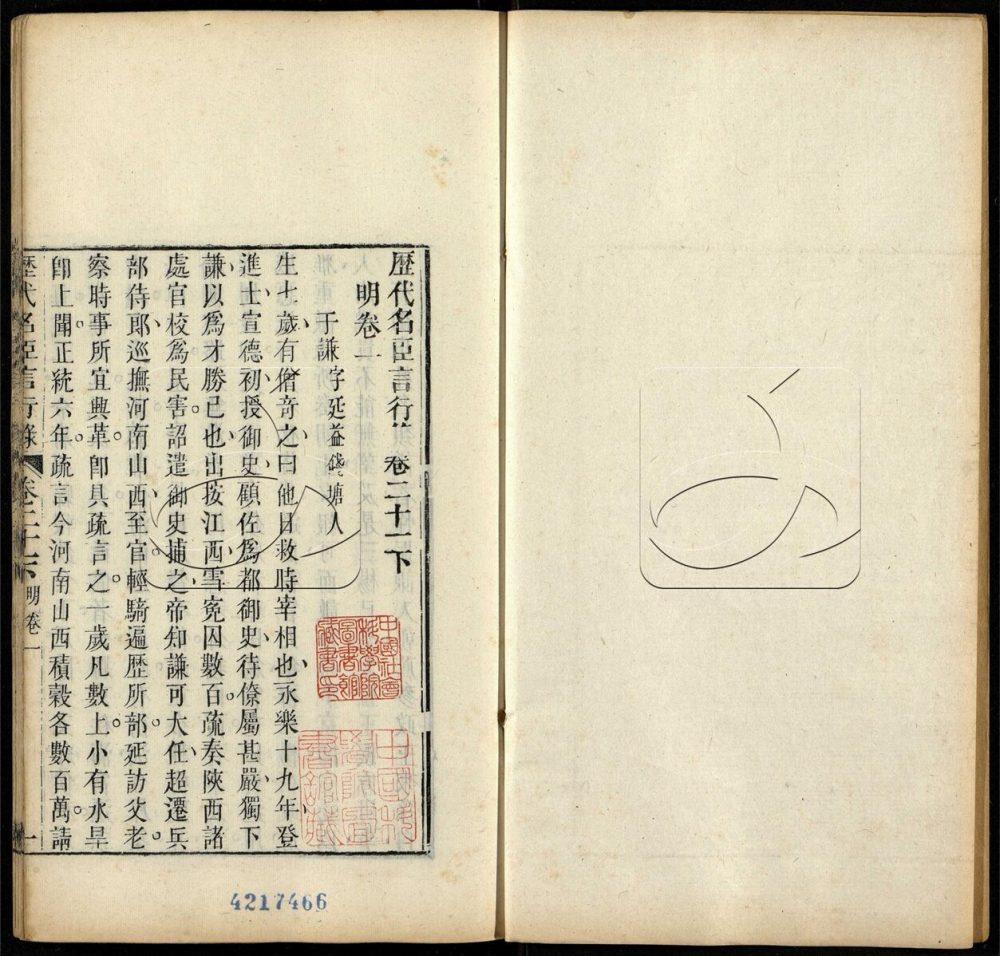 歷代名臣言行錄 卷二十一下
明卷一
于謙字廷益錢塘人
生七歲有僧奇之曰他日救時宰相也永樂十九年登
進士宣德初授御史顧佐爲都御史待僚屬甚嚴獨下
謙以爲才勝已也出按江西雪寃囚數百疏奏陝西諸
處官校爲民害詔遣御史捕之帝知謙可大任超遷兵
部侍郎巡撫河南山西至官輕騎遍歷所部延訪父老
察時事所宜興革卽具疏言之一歲凡數上小有水旱
卽上聞正統六年疏言今河南山西積穀各數百萬請
歷代名臣言行錄 卷二十一下 明卷一 一
中國社會科學院圖書館藏書印
4217466